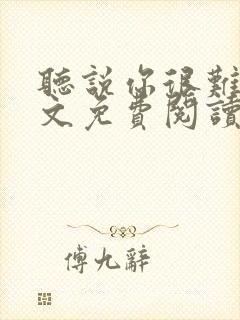 聽説你很難
文免費閱讀
傅九辭